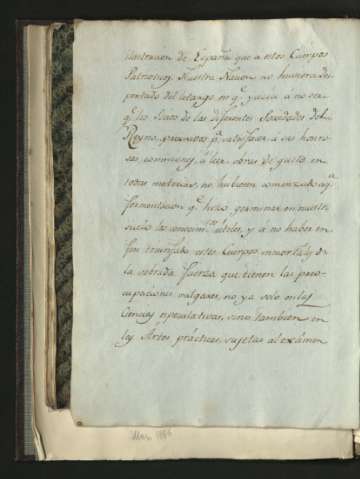 ilustracion de España que a estos Cuerpos
Patrioticos. Nuestra Nacion no huviera des-
pertado del letargo, en qe. yacia á no ser
qe. los Socios de las diferentes Sociedades del
Reyno, pa. satisfacer á sus honro-
sas comisiones, á leer obras de gusto en
todas materias, no hubiesen comenzado aqa.
fermentacion qe. hizo germinar en nuestro
suelo los conocimtos. utiles, y á no haber en
fin triunfado estos Cuerpos inmortales de
la sobrada fuerza que tienen las preo-
cupaciones vulgares, no ya solo en las
Ciencias especulativas, sino tambien en
las Artes prácticas, sujetas al exámen